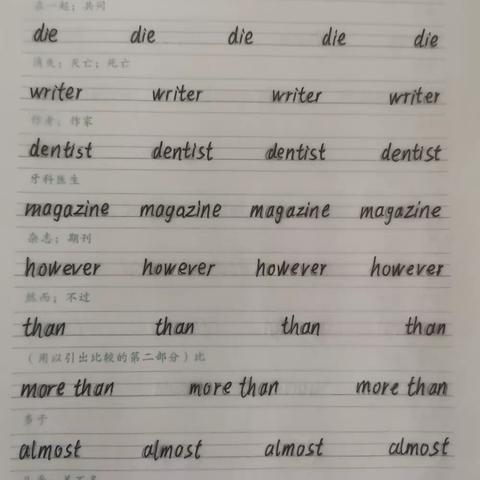 在一起；共同
die die die die die
消失；灭亡；死亡
writer writer writer writer
作者；作家
dentist dentist dentist dentist
牙科医生
magazine magazine magazine magazine
杂志；期刊
however however however however
然而；不过
than than than than
（用以引出比较的第二部分）比
more than more than more than
多于
almost almost almost almost